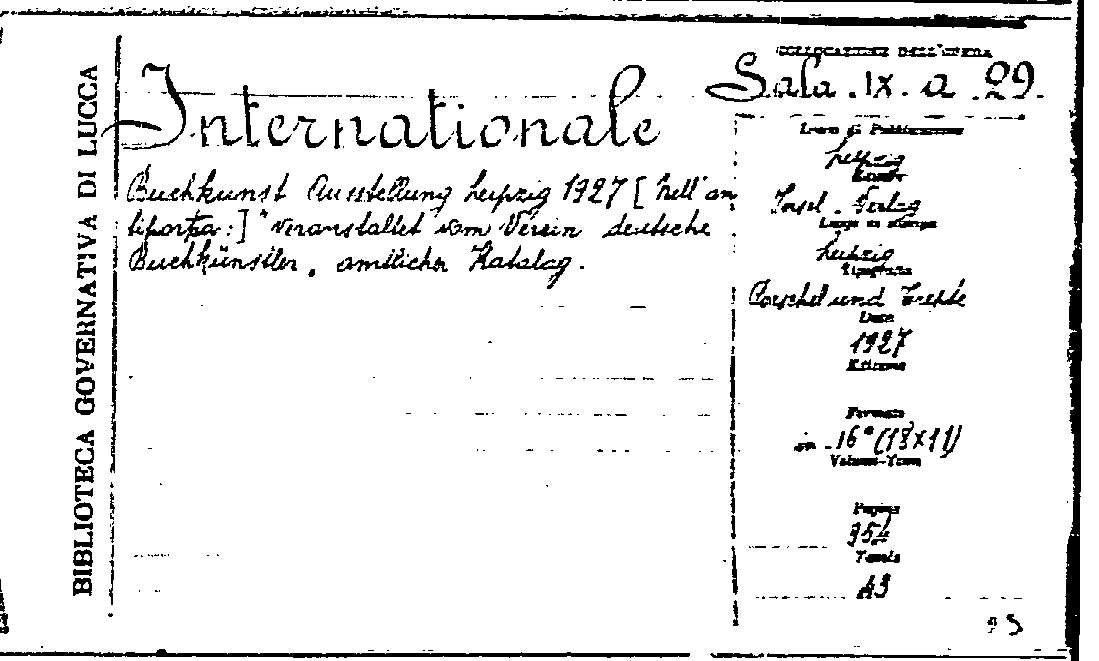 BIBLIOTECA GOVERNATIVA DI LUCCA
COLLOCAZIONE DELL'OPERA
Sala . IX . a . 29.
Internationale
Buchkunst Ausstellung Leipzig 1927 [Nell'an
tiporta:] "veranstaltet vom Verein deutsche
Buchkünstler. amtlicher Katalog.
Luogo di Pubblicazione
Leipzig
Editore
Insel - Verlag
Luogo di stampa
Leipzig
Tipografia
Poeschel und Trepte
Data
1927
Edizione
Formato
in - 16° (18×11)
Volume-Tomo
Pagine
354
Tavole
43